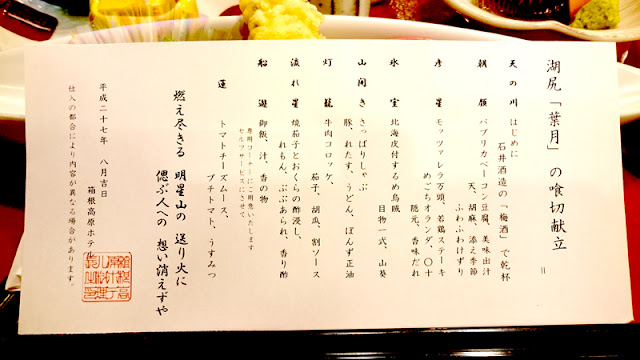 湖尻「葉月」の喰切献立
天の川 はじめに
石井酒造の「梅酒」で乾杯
朝顔 パプリカベーコン豆腐、美味出汁
天、胡麻、添え季節
ふわふわけずり
彦星 モッツァレラ万頭、若鶏ステーキ
めごちオランダ、〇十
隠元、香味だれ
氷室 北海皮付するめ烏賊
目物一式、山葵
山開き さっぱりしゃぶ
豚、れたす、うどん、ぽんず正油
灯籠 牛肉コロッケ、
茄子、胡瓜、割ソース
流れ星 焼茄子とおくらの酢浸し、
れもん、ぶぶあられ、香り酢
船遊 御飯、汁、香の物
専用コーナーにご用意いたします
セルフサービスにさせて
蓮 トマトチーズムース、
プチトマト、うすみつ
燃え尽きる 明星山の 送り火に
偲ぶ人への 想い消えずや
平成二十七年 八月吉日
箱根高原ホテル
仕入の都合により内容が異なる場合があります。